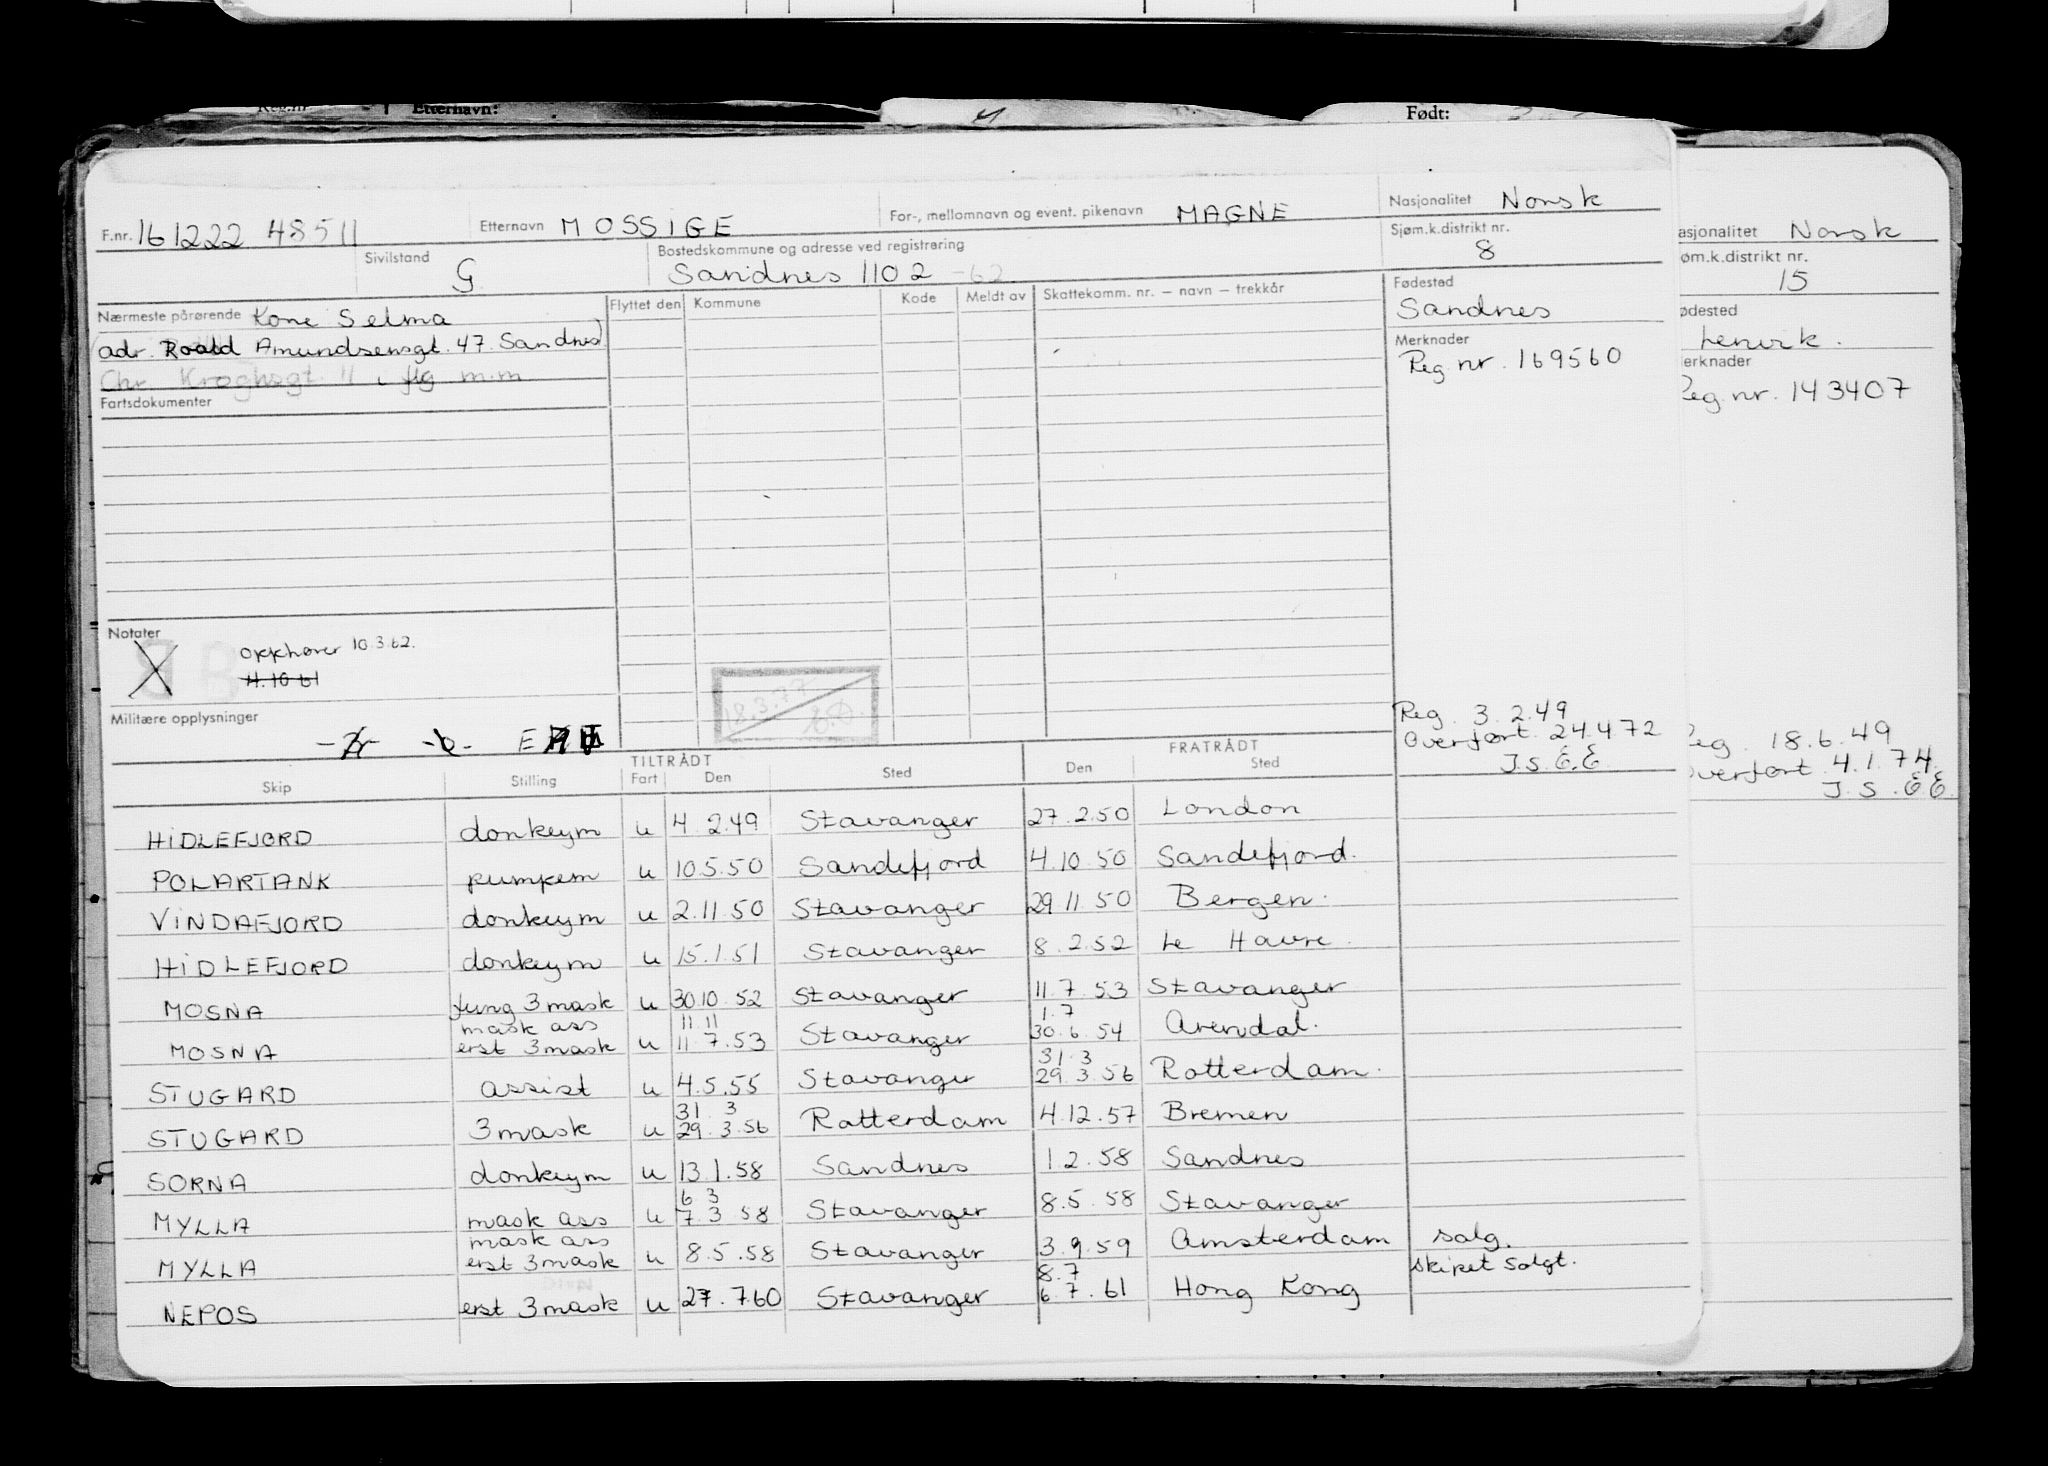 Etternavn: Født:
F.nr. 161222 48511 Etternavn MOSSIGE For-, mellomnavn og event. pikenavn MAGNE Nasjonalitet Norsk
Sivilstand G Bostedskommune og adresse ved registrering Sandnes 1102 -62 Sjøm.k.distrikt nr. 8
Nærmeste pårørende Kone Selma Flyttet den Kommune Kode Meldt av Skattekomm. nr. – navn – trekkår Fødested Sandnes
adr. Roald Amundsensgt. 47. Sandnes
Chr. Kroghsgt. 11 i flg m.m
Merknader
Reg nr. 169560
Fartsdokumenter
Notater
X Opphører 10.3.62.
4.10 61
18.3.77
Militære opplysninger
Reg. 3.2.49
Overført. 24.4.72
J.S.E.E.
TILTRÅDT FRATRÅDT
Skip Stilling Fart Den Sted Den Sted
HIDLEFJORD donkeym u 4.2.49 Stavanger 27.2.50 London
POLARTANK pumpem u 10.5.50 Sandefjord 4.10.50 Sandefjord.
VINDAFJORD donkeym u 2.11.50 Stavanger 29.11.50 Bergen.
HIDLEFJORD donkeym u 15.1.51 Stavanger 8.2.52 Le Havre.
MOSNA fung 3mask u 30.10.52 Stavanger 11.7.53 Stavanger
mask ass 11.11 1.7
MOSNA erst 3mask u 11.7.53 Stavanger 30.6.54 Arendal.
31.3
STUGARD assist u 4.5.55 Stavanger 29.3.56 Rotterdam.
31.3
STUGARD 3mask u 29.3.56 Rotterdam 4.12.57 Bremen
SORNA donkeym u 13.1.58 Sandnes 1.2.58 Sandnes
6 3
MYLLA mask ass u 7.3.58 Stavanger 8.5.58 Stavanger
mask ass
MYLLA erst 3mask u 8.5.58 Stavanger 3.9.59 Amsterdam salg.
8.7 skipet solgt.
NEPOS erst 3mask u 27.7.60 Stavanger 6.7.61 Hong Kong
asjonalitet Norsk
øm.k.distrikt nr.
15
ødested
Lenvik.
erknader
eg. nr. 143407
eg. 18.6.49
verført 4.1.74.
J.S.E.E.